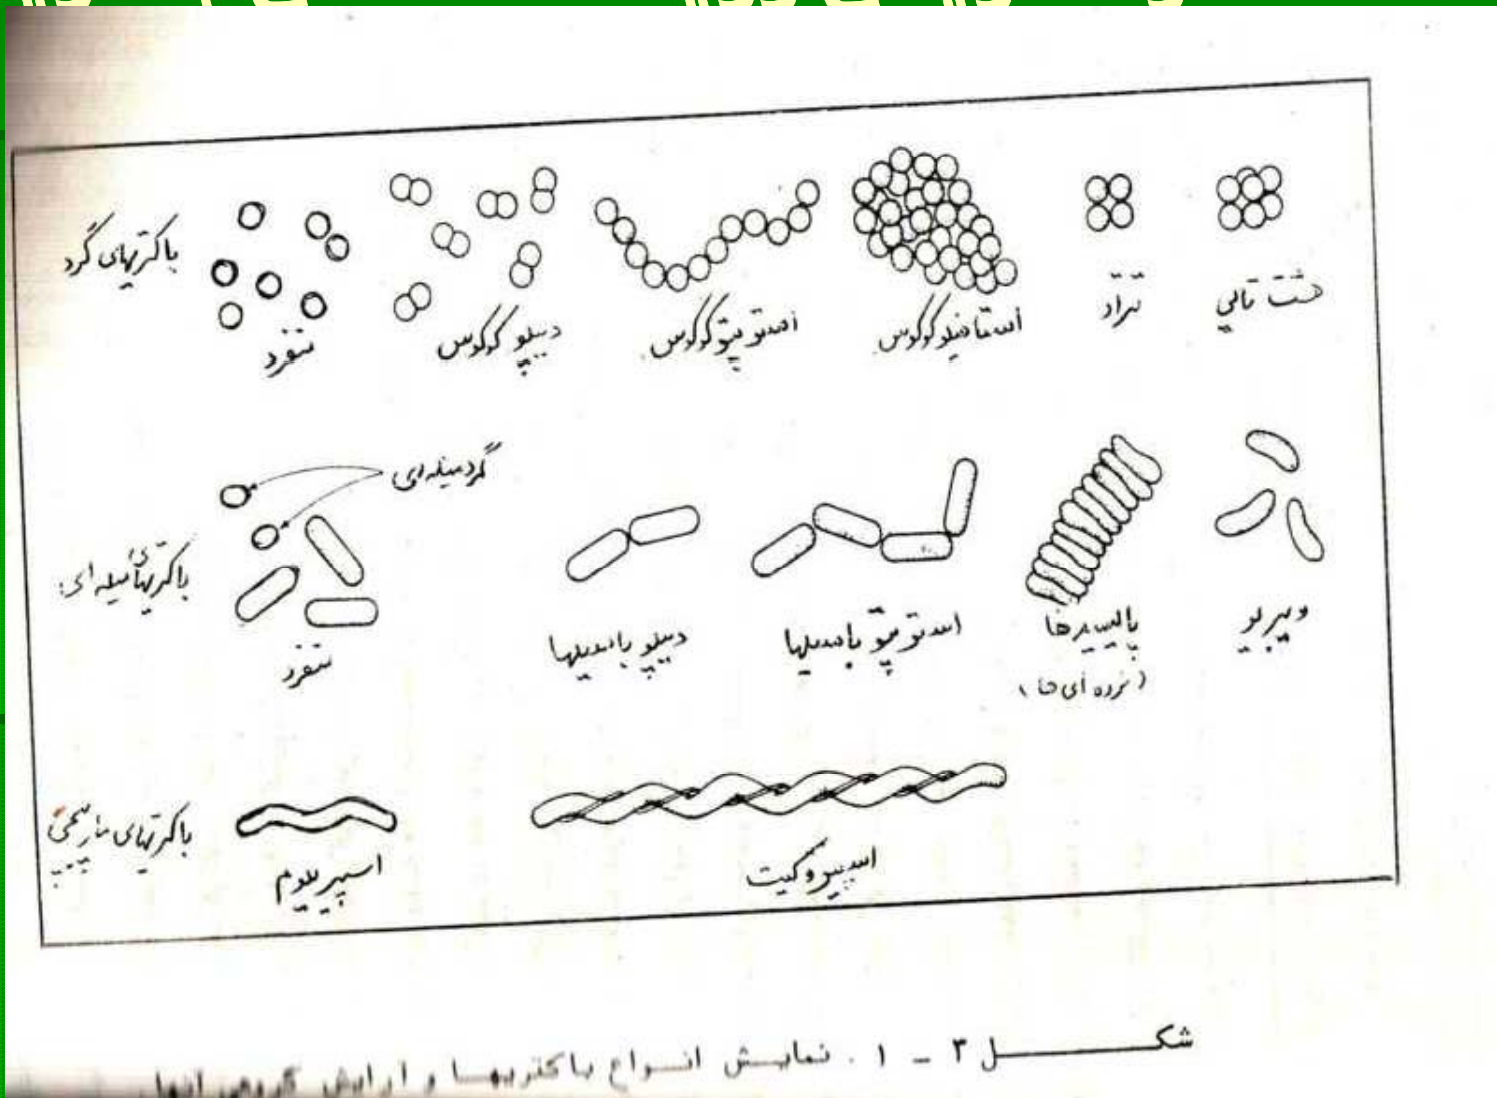 باکتریهای گرد
منفرد
دیپلو کوکوس
استرپتوکوکوس
استافیلوکوکوس
تتراد
هشت تائی
گرد میله ای
باکتریهای میله ای:
منفرد
دیپلو باسیلها
استرپتو باسیلها
پالیسیدها
(نرده ای ها)
ویبریو
باکتریهای مارپیچی
اسپیریلوم
اسپیروکیت
شکل ۳ - ۱ . نمایش انواع باکتریها و آرایش گروهی آنها